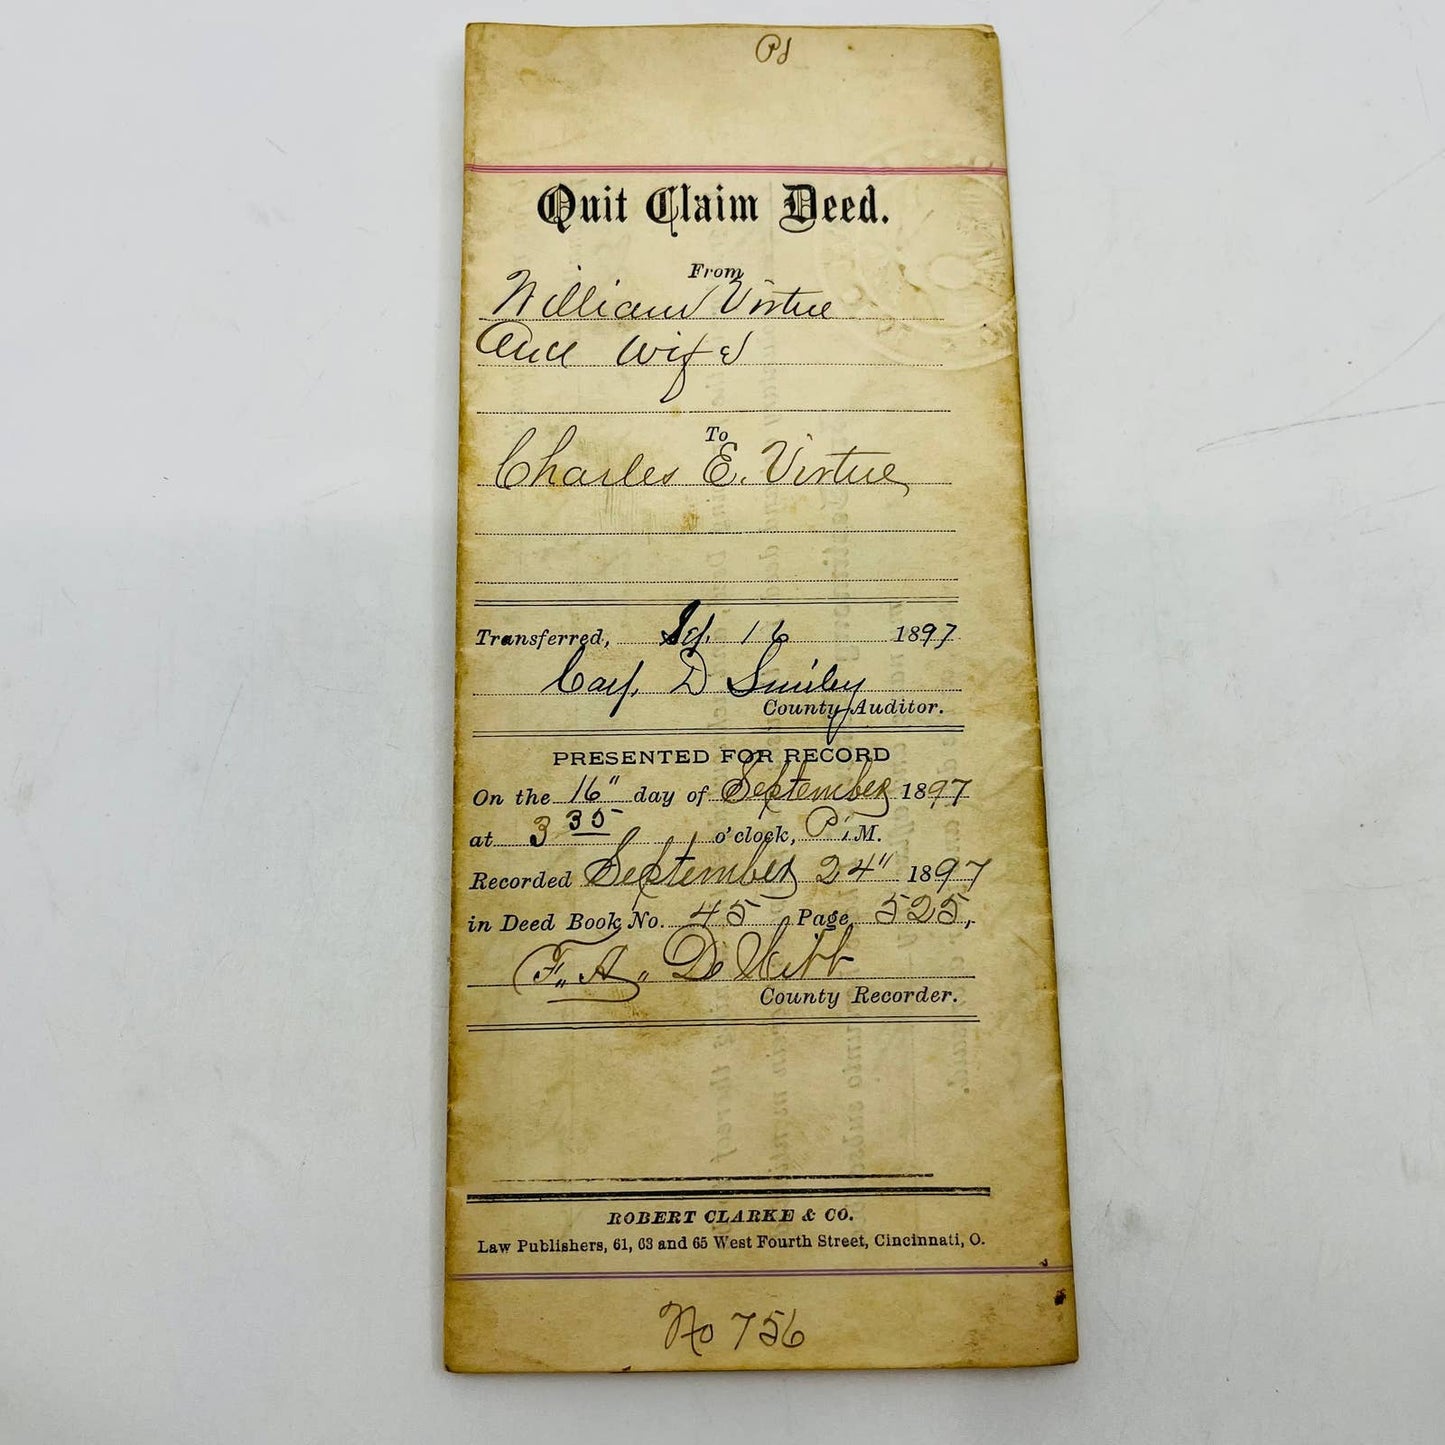 Pd
Quit Claim Deed.
From
William Virtue
And Wife
To
Charles E. Virtue
Transferred, Sept. 16 1897
D Smiley
County Auditor.
PRESENTED FOR RECORD
On the 16" day of September 1897
at 3 30 o'clock, P. M.
Recorded September 24" 1897
in Deed Book No. 45 Page 525,
F. A. De
County Recorder.
ROBERT CLARKE & CO.
Law Publishers, 61, 63 and 65 West Fourth Street, Cincinnati, O.
No 756